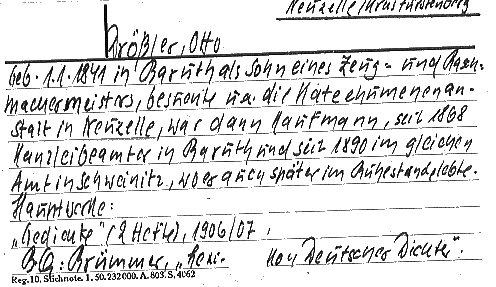 Neuzelle/Krs. Fürstenberg
Größler, Otto
geb. 1.1.1841 in Baruth als Sohn eines Zeug- und Rasch-
machermeisters, besuchte u.a. die Katechumenenan-
stalt in Neuzelle, war dann Kaufmann, seit 1868
Kanzleibeamter in Baruth und seit 1890 im gleichen
Amt in Schweinitz, wo er auch später im Ruhestand lebte.
Hauptwerke:
„Gedichte" (2 Hefte), 1906/07.
BQ: Brümmer, „Lexi- kon Deutscher Dichter".
Reg. 10. Stichnote. 1. 50. 232000. A. 803. S. 4062